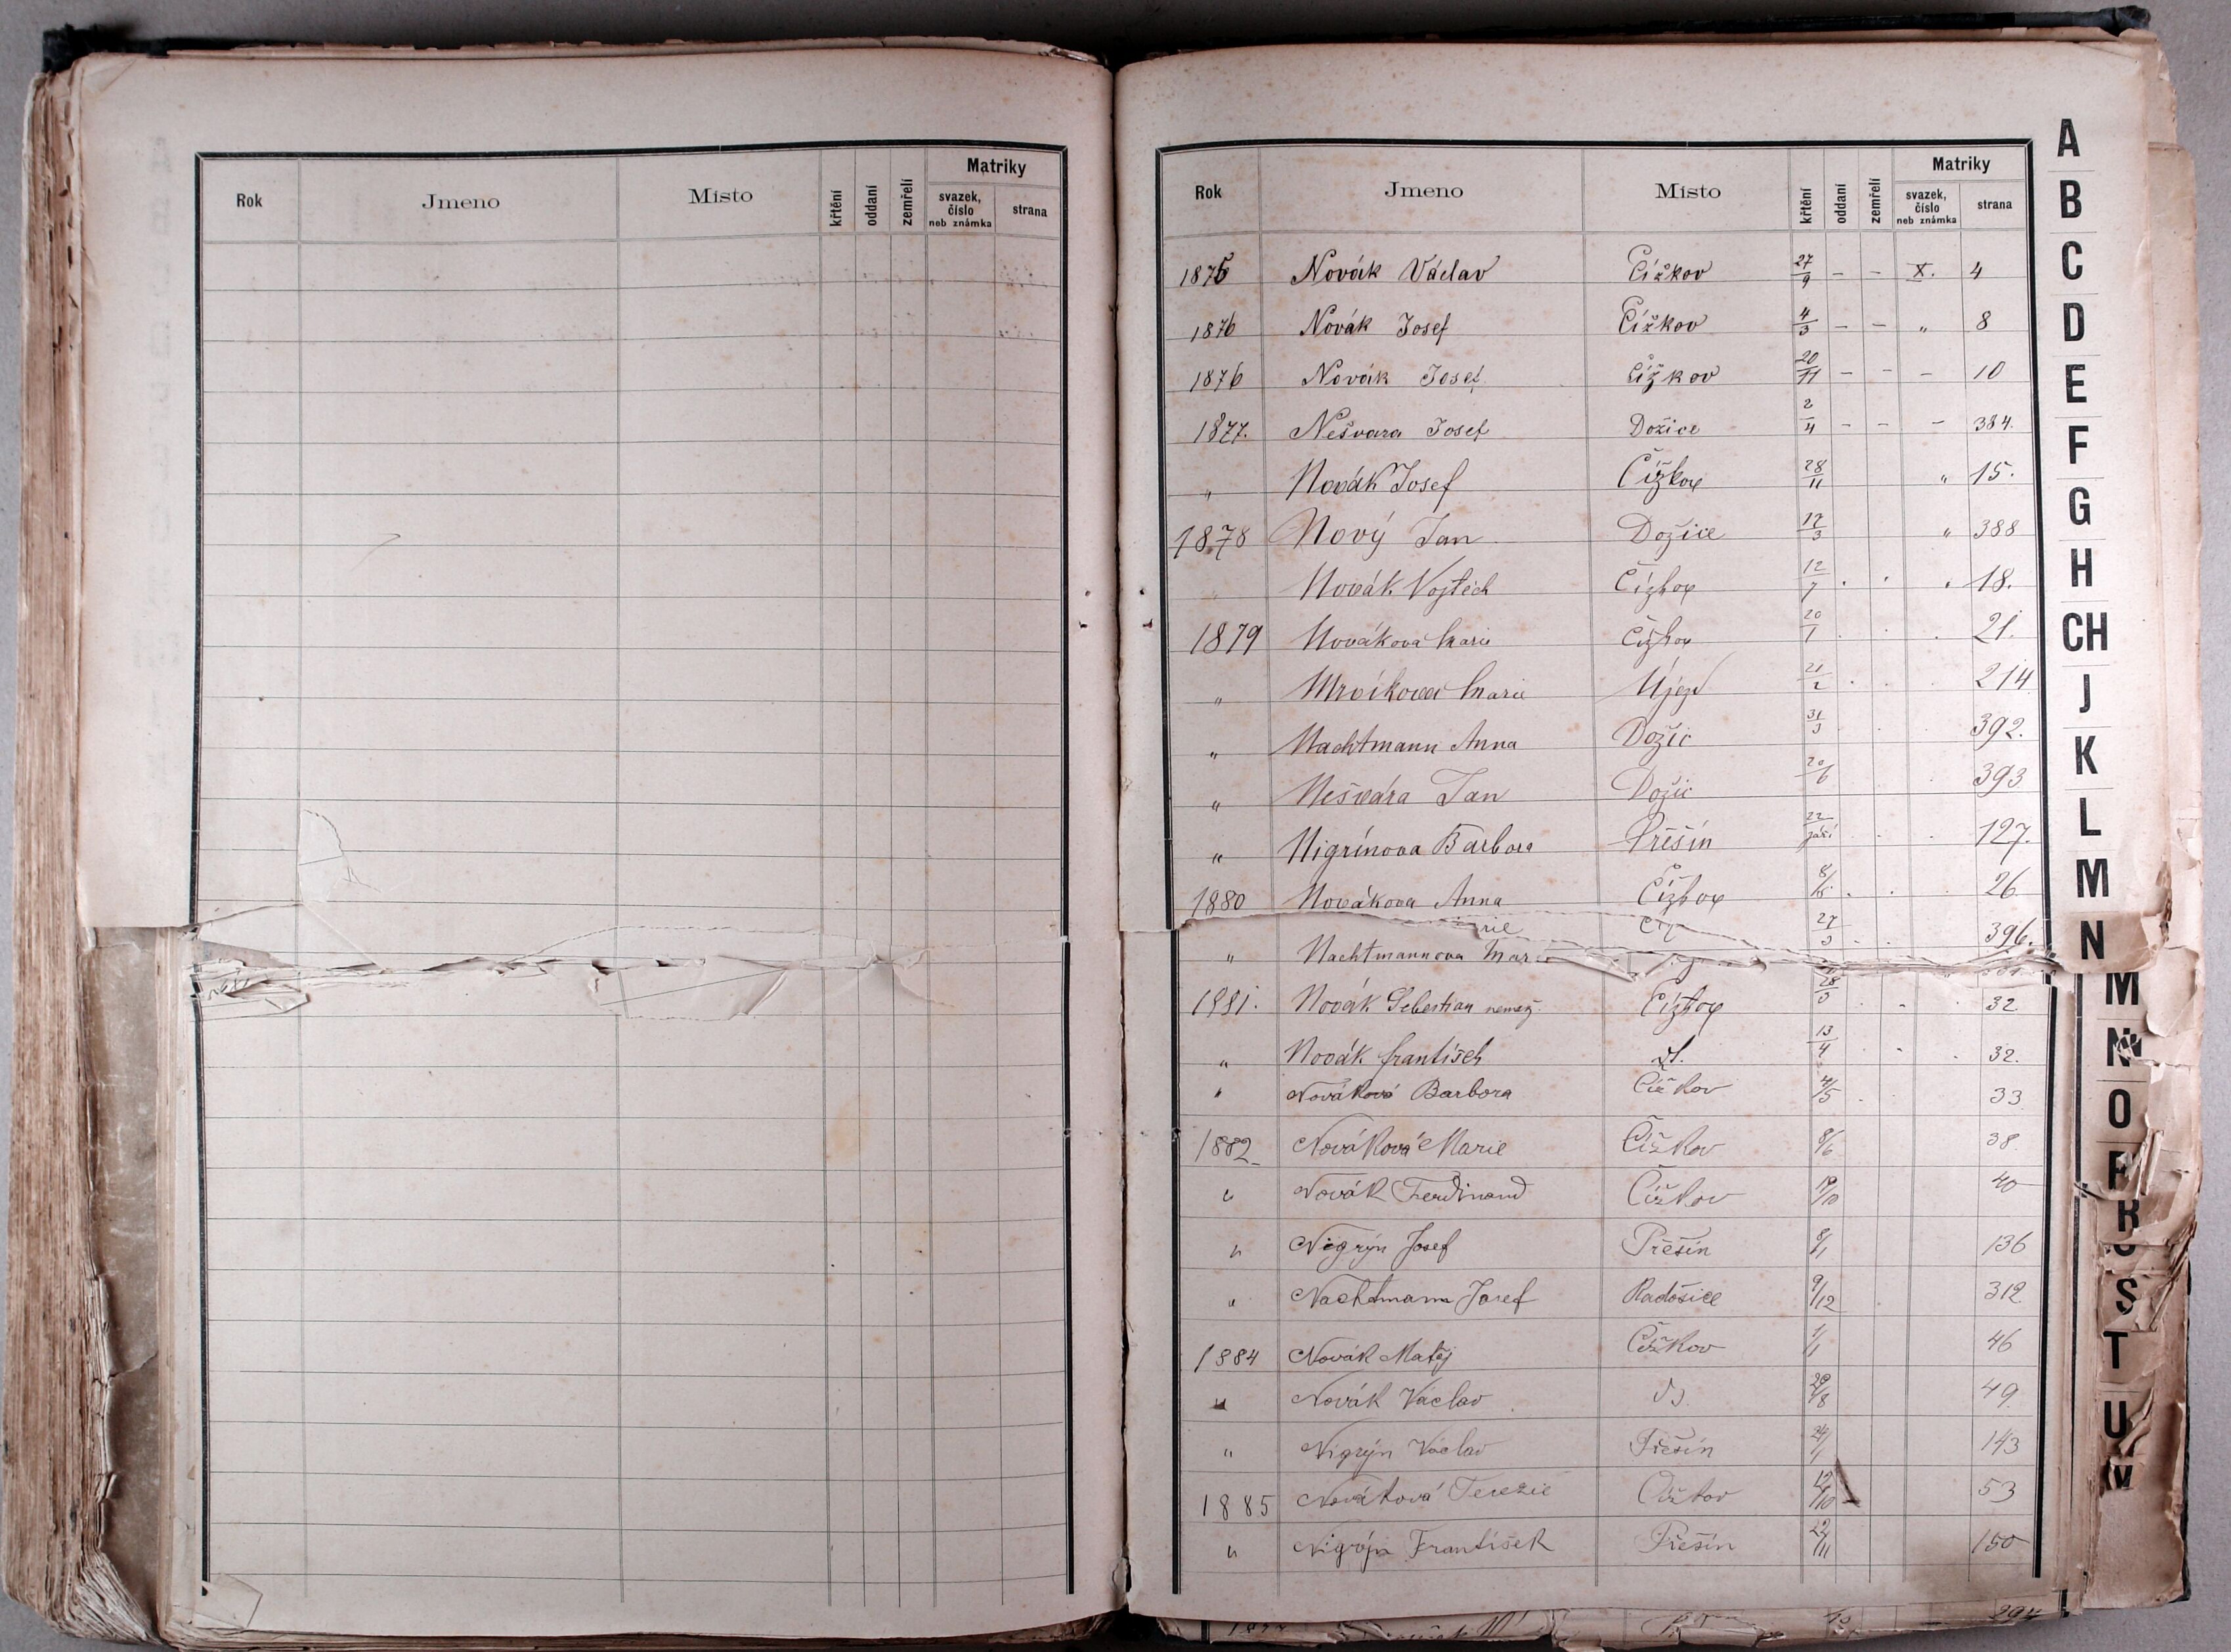 Rok Jmeno Místo křtění oddaní zemřelí Matriky svazek, číslo neb známka strana
Rok Jmeno Místo křtění oddaní zemřelí Matriky svazek, číslo neb známka strana
1875 Novák Václav Čížkov 27/9 - - X. 4
1876 Novák Josef Čížkov 4/3 - - " 8
1876 Novák Josef Čížkov 20/11 - - - 10
1877. Nešvara Josef Dožice 2/4 - - - 384.
" Novák Josef Čížkov 28/11 " 15.
1878 Nový Jan Dožice 17/3 " 388
" Novák Vojtěch Čížkov 12/7 . . " 18.
1879 Nováková Marie Čížkov 20/1 . . . 21.
" Marie Újezd 21/2 . . . 214
" Nachtmann Anna Dožic 31/3 . . 392.
" Nešvára Jan Dožic 20/6 393
" Nigrínova Barbora Přešín 22/září . . 127.
1880 Novákova Anna Čížkov 8/ . . . 26
27/3 . . 396.
" Nachtmannova Marie
1881. Novák Sebestian Čížkov 28/3 . . . 32
" Novák František dt. 13/4 . . . 32.
" Nováková Barbora Čížkov 4/5 . . 33
1882 Nováková Marie Čížkov 8/6 38
" Novák Ferdinand Čížkov 19/10 40
" Nigrýn Josef Přešín 8/1 136
" Nachtmann Josef Radošice 9/12 312
1884 Novák Matěj Čížkov 1/1 46
" Novák Václav 29/8 49
" Nigrýn Václav Přešín 24/1 143
1885 Nováková Terezie Čížkov 12/10 53
" Nigrýn František Přešín 22/11 150
A
B
C
D
E
F
G
H
CH
J
K
L
M
N
M
N
O
P
R
S
T
U